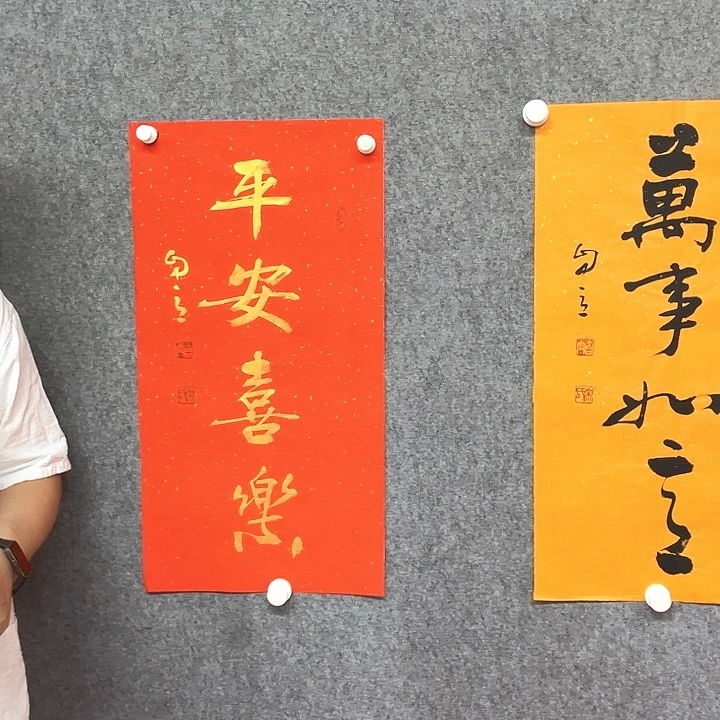 平安喜樂
萬事如意